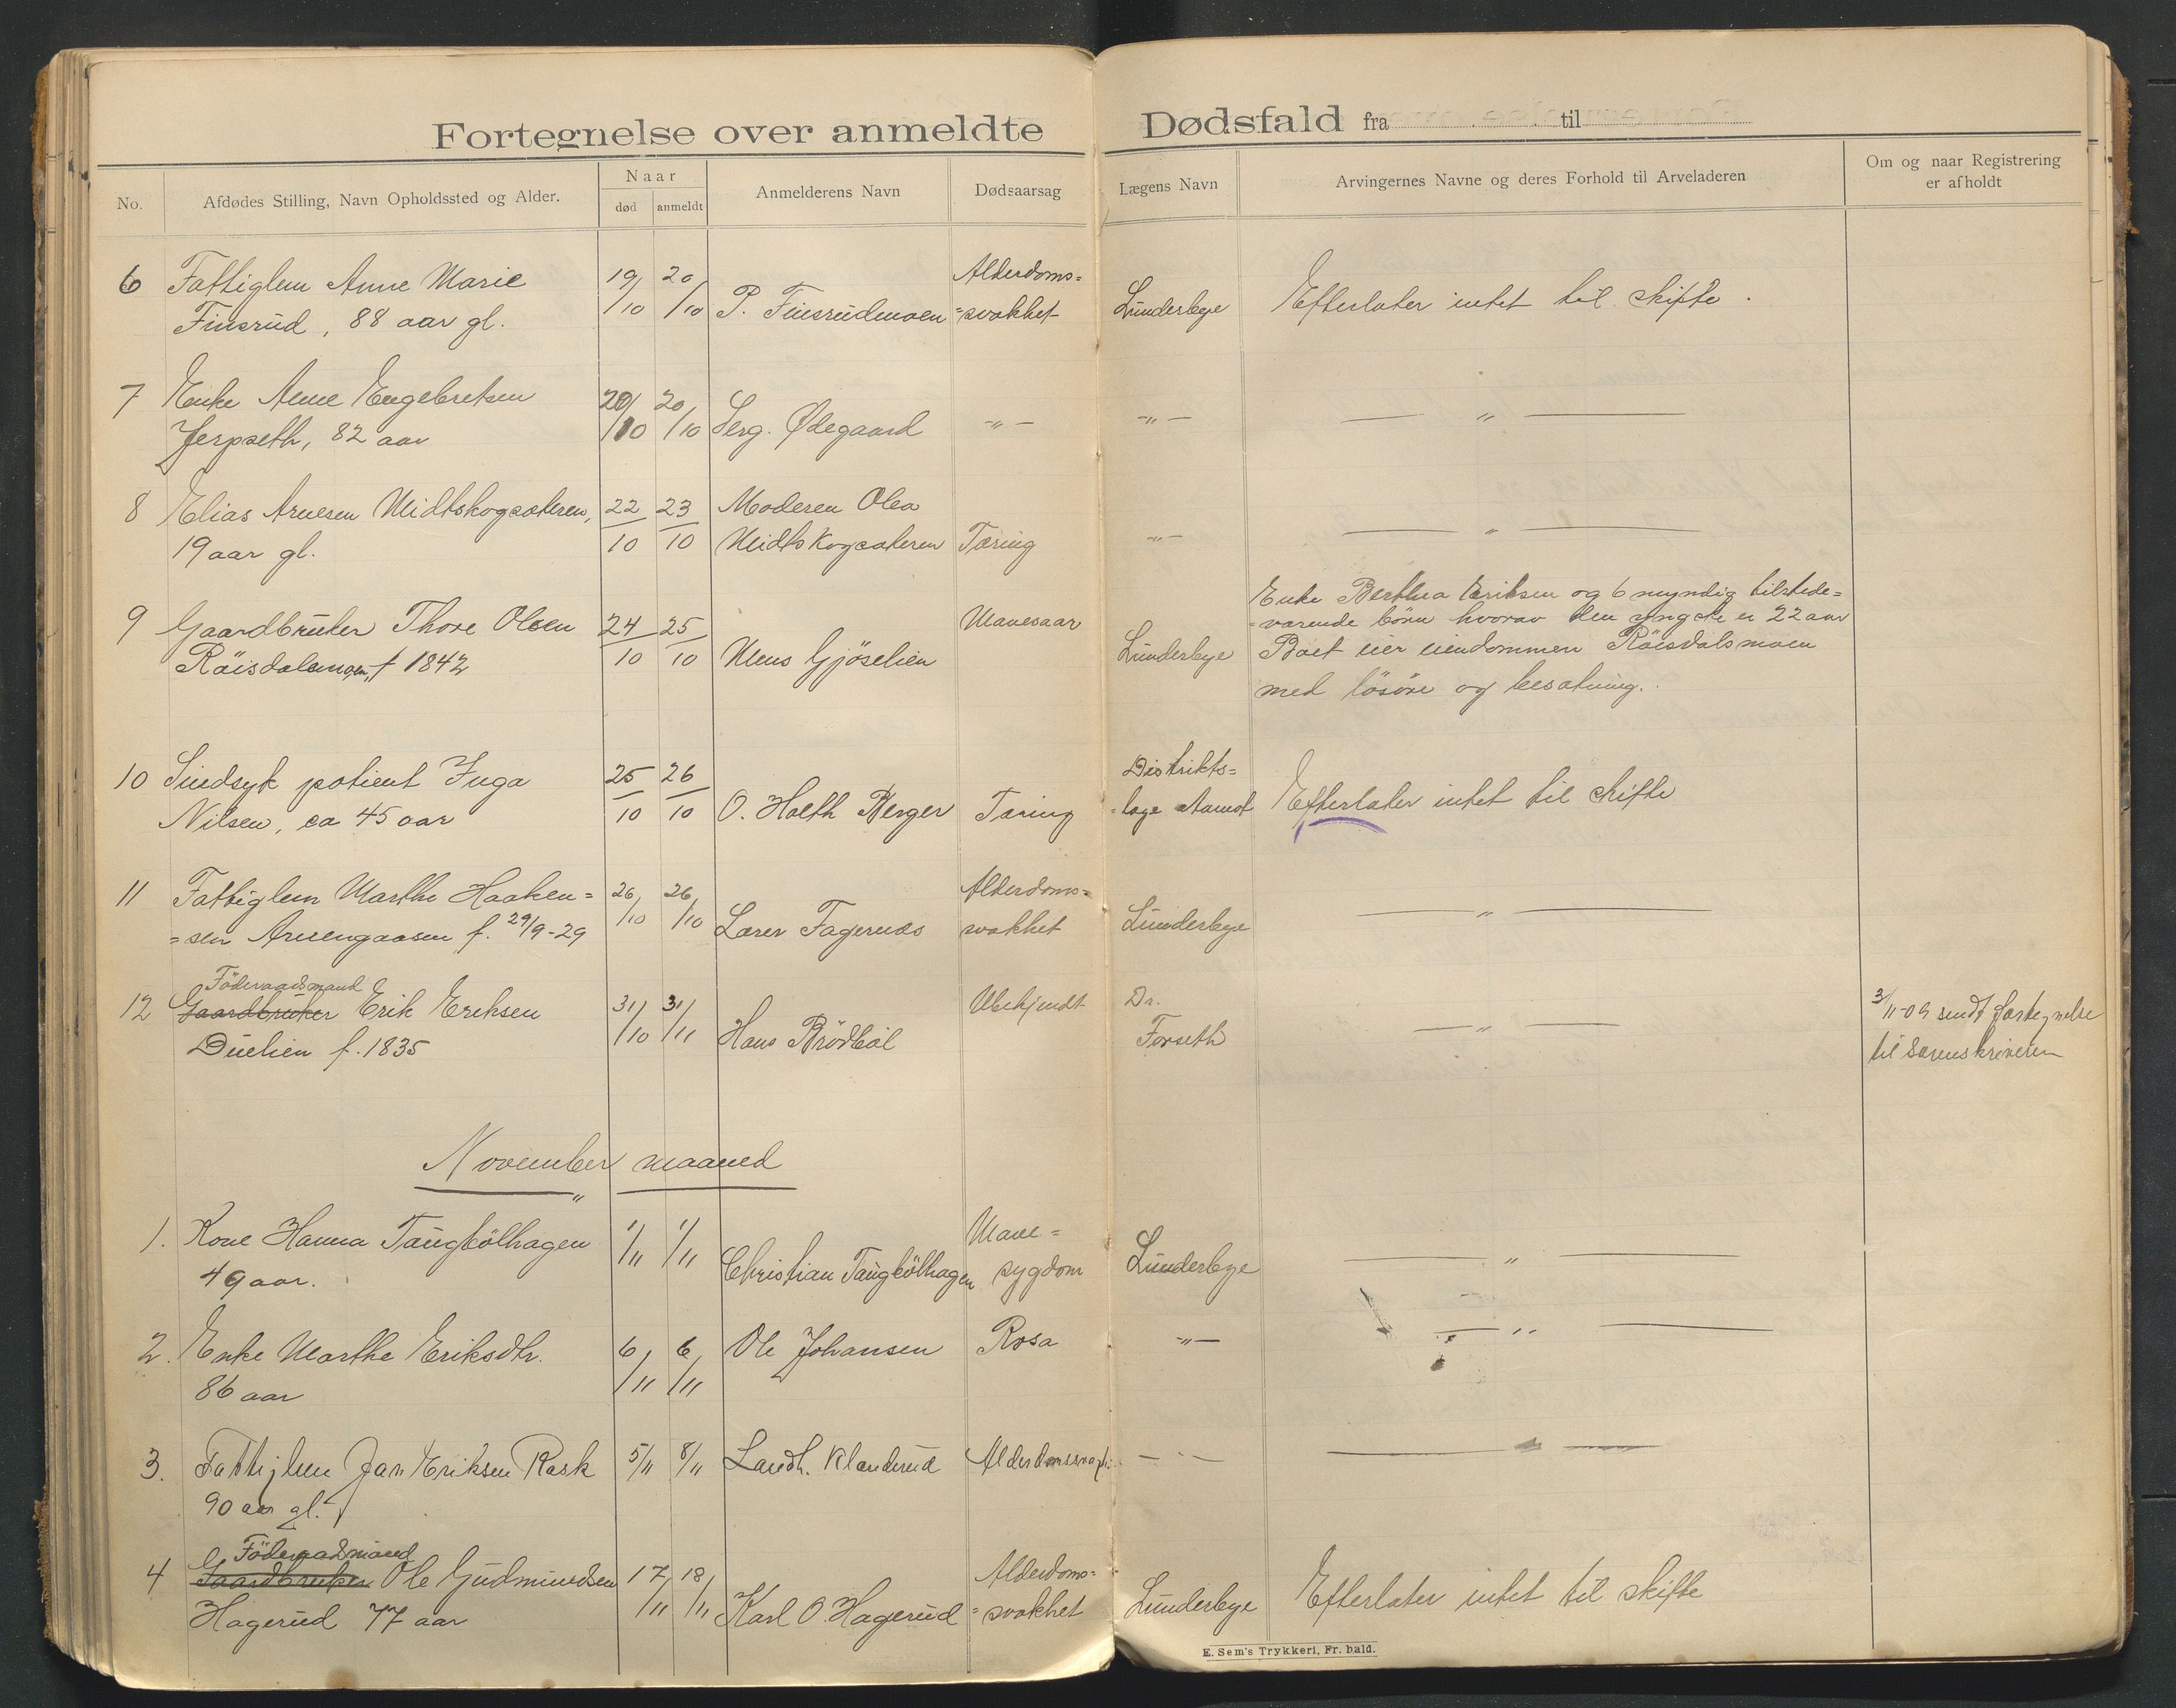 Fortegnelse over anmeldte Dødsfald fra til
No.
Afdødes Stilling, Navn Opholdssted og Alder.
Naar
død anmeldt
Anmelderens Navn
Dødsaarsag
Lægens Navn
Arvingernes Navne og deres Forhold til Arveladeren
Om og naar Registrering
er afholdt
6 Fattiglem Anne Marie
Finsrud, 88 aar gl.
19/10 20/10
P. Finsrudmoen
Alderdoms=
=svakhet
Lunderbye
Efterlater intet til skifte.
7 Enke Anne Engebretsen
Jerpseth, 82 aar
20/10 20/10
Serg. Ødegaard
-"-
-"-
— " —
8 Elias Arnesen Midtskogsæteren,
19 aar gl.
22/10 23/10
Moderen Olea
Midtskogsæteren
Tæring
-"-
— " —
9 Gaardbruker Thore Olsen
Röisdalsmoen, f 1842
24/10 25/10
Mens Gjöselien
Mavesaar
Lunderbye
Enke Berthea Eriksen og 6 myndig tilstede=
=værende börn hvorav den yngste er 22 aar
Boet eier eiendommen Röisdalsmoen
med lösöre og besætning.
10 Sindsyk patient Inga
Nilsen, ca 45 aar
25/10 26/10
O. Holth Berger
Tæring
Distrikts=
=læge
Efterlater intet til skifte
11 Fattiglem Marthe Haaken=
=sen Arnengaasen f. 29/9-29
26/10 26/10
Lærer Fagernæs
Alderdoms=
svakhet
Lunderbye
— " —
12 Föderaadsmand
Gaardbruker Erik Eriksen
Dulien f. 1835
31/10 31/11
Hans Brödböl
Ubekjendt
Dr.
Forseth
— " —
3/11-09 sendt fortegnelse
til Sorenskriveren
November maaned
1. Kone Hanna Taugbölhagen
49 aar.
1/11 1/11
Christian Taugbölhagen
Mave=
sygdom
Lunderbye
— " —
2. Enke Marthe Eriksdtr.
86 aar
6/11 6/11
Ole Johansen
Rosa
-"-
— " —
3. Fattiglem Jan Eriksen Rask
90 aar gl.
5/11 8/11
Landh. Klanderud
— " —
— " —
4 Föderaadmand
Gaardbruker Ole Gudmundsen
Hagerud 77 aar
17/11 18/11
Karl O Hagerud
Alderdoms=
=svakhet
Lunderbye
Efterlater intet til skifte
E. Sem's Trykkeri, Fr. hald.